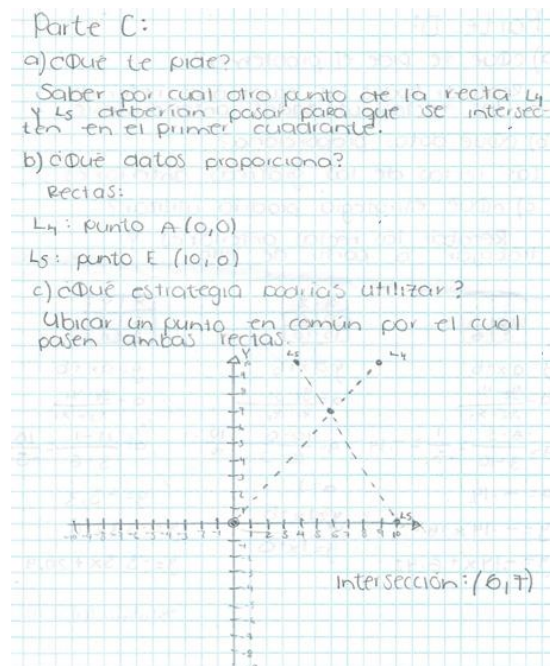 Parte C:
a) ¿Qué te pide?
Saber por cual otro punto de la recta L4
y L5 deberían pasar para que se intersec-
tén en el primer cuadrante.
b) ¿Qué datos proporciona?
Rectas:
L4: punto A (0,0)
L5: punto E (10,0)
c) ¿Qué estrategia podrías utilizar?
Ubicar un punto en común por el cual
pasen ambas rectas.
Y
L5
L4
L5
1 2 3 4 5 6 7 8 9 10
Intersección: (6,7)